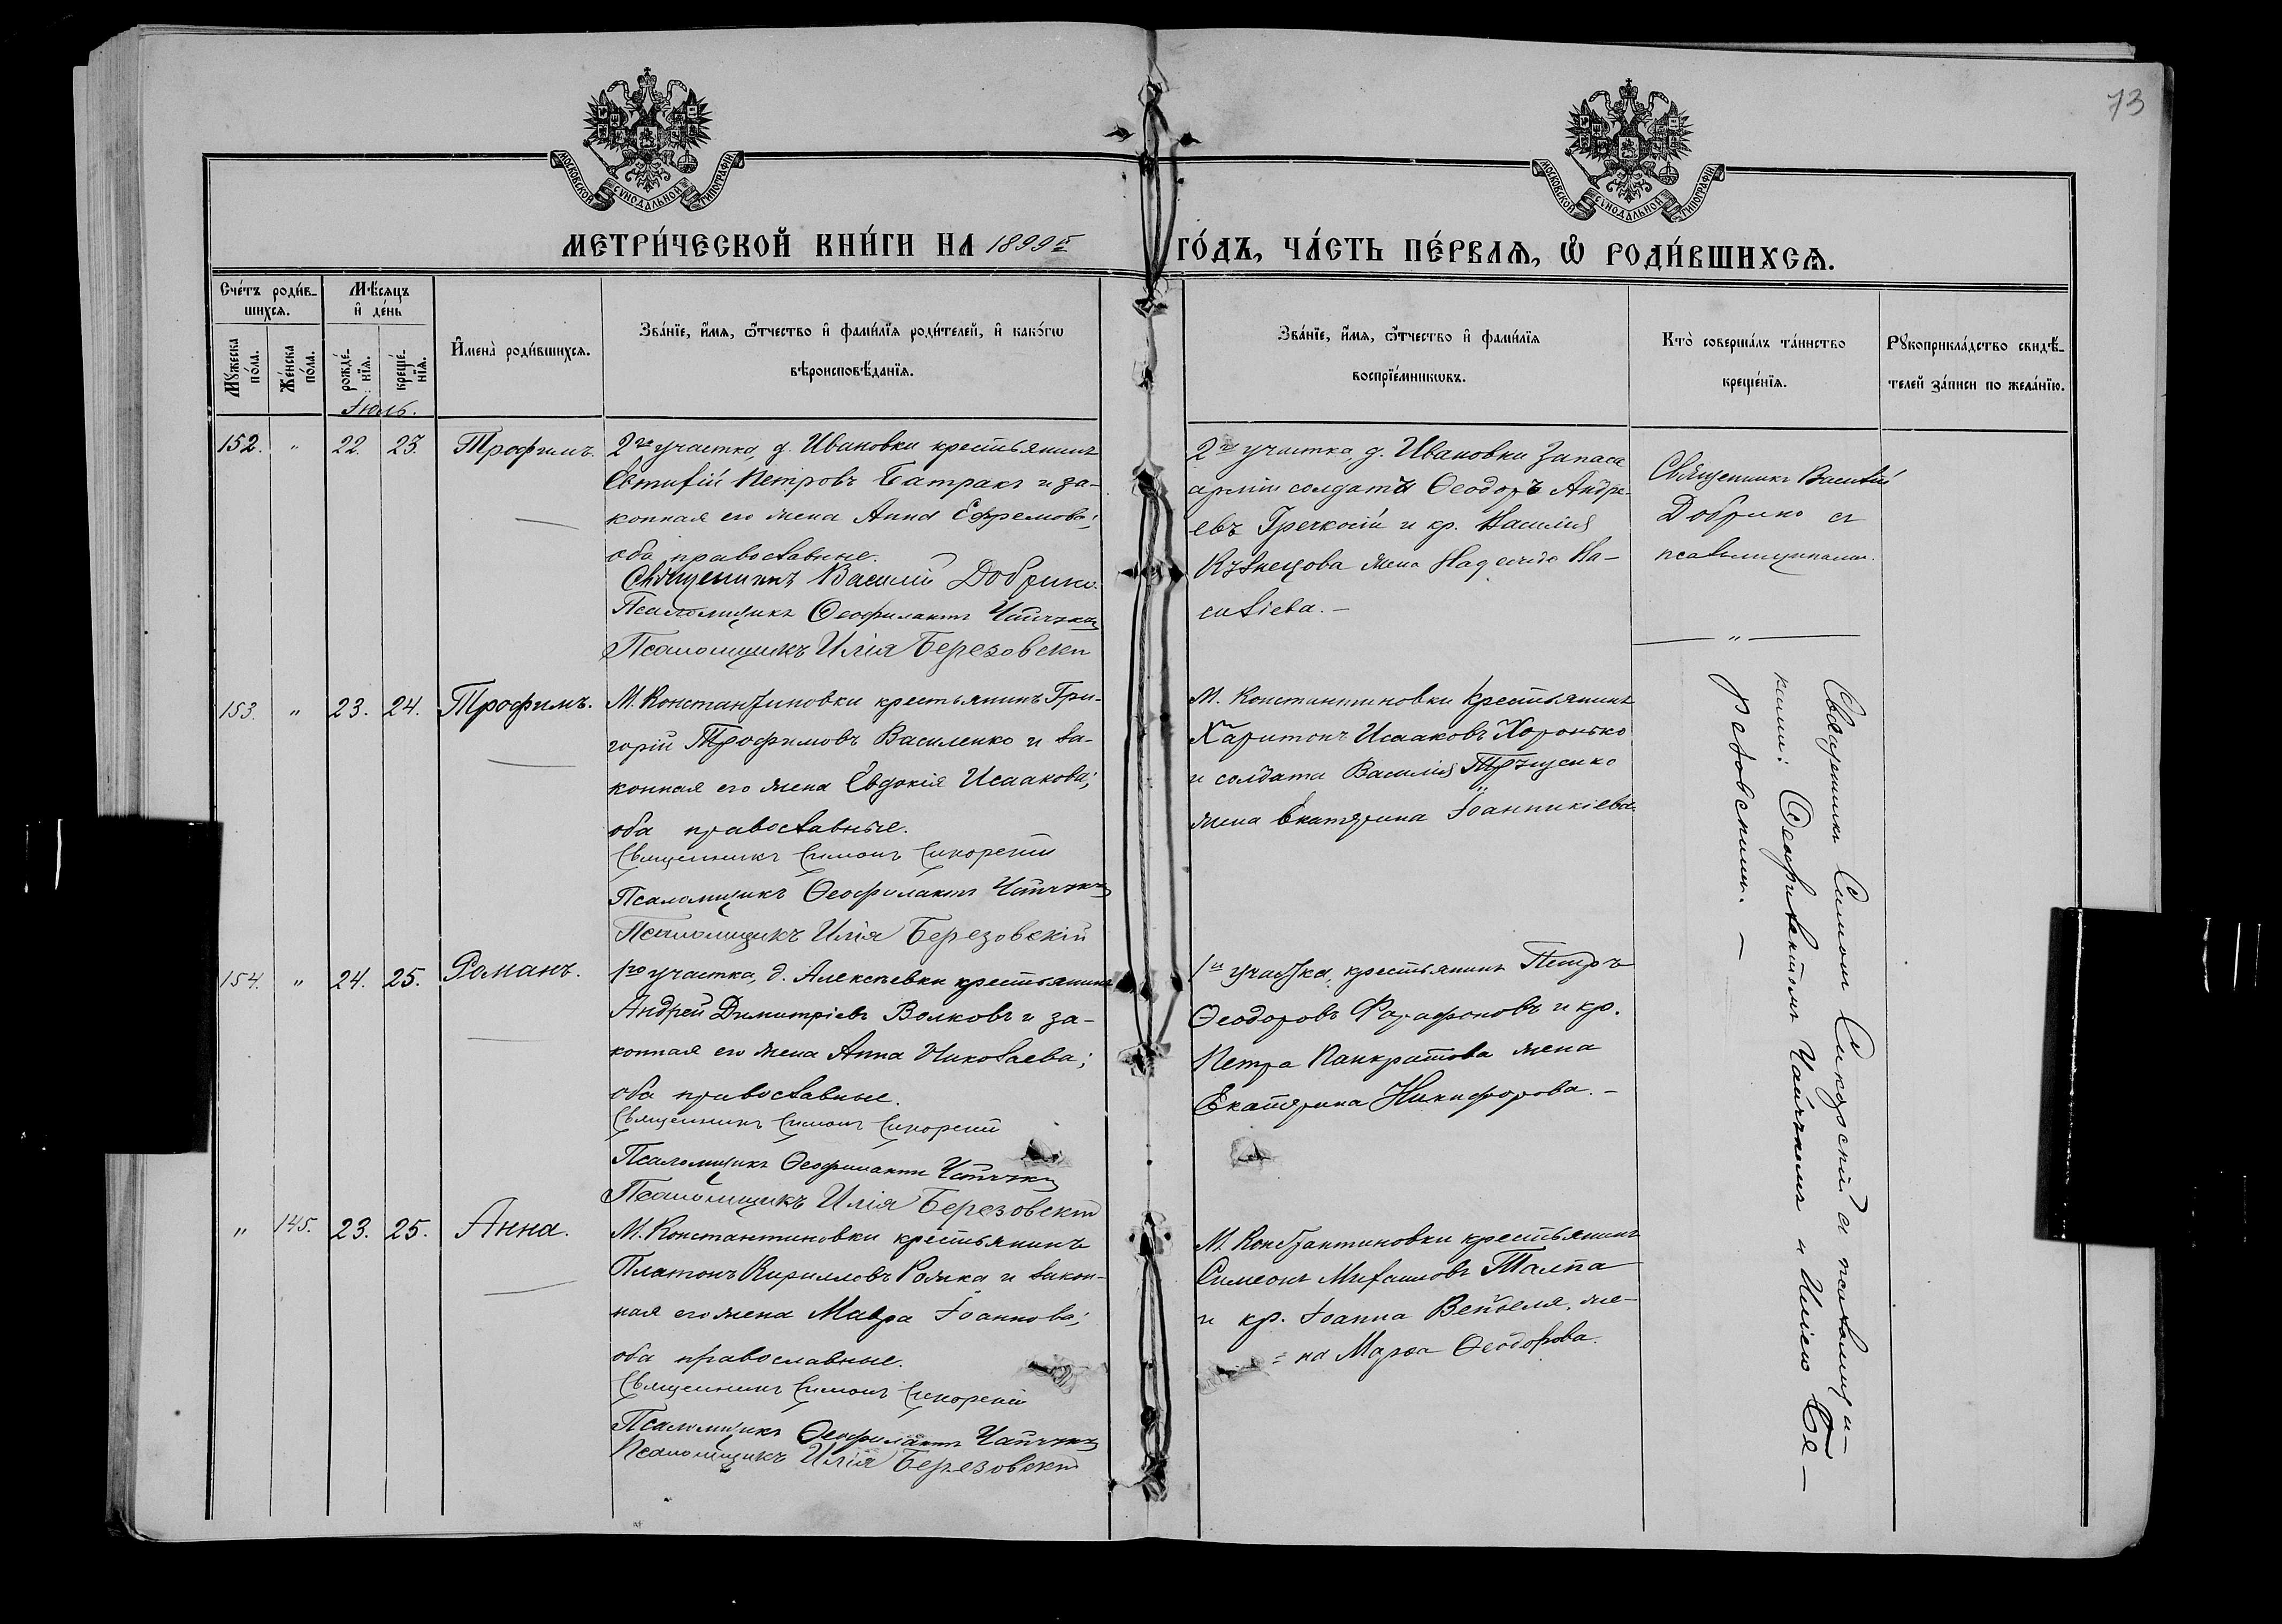 73
МОСКОВСКОЙ СѴНОДАЛЬНОЙ ТИПОГРАФІИ
МОСКОВСКОЙ СѴНОДАЛЬНОЙ ТИПОГРАФІИ
МЕТРИ́ЧЕСКОЙ КНИ́ГИ НА 1899й ГО́ДЪ, ЧА́СТЬ ПЕ́РВАѦ, Ѡ҆ РОДИ́ВШИХСѦ.
Сче́тъ роди́в-
шихсѧ.
Мꙋ́жеска по́ла.
Же́нска по́ла.
Мѣ́сяцъ
и҆ де́нь
рожде́-
нїѧ.
креще́-
нїѧ.
И҆мена̀ роди́вшихсѧ.
Зва́нїе, и҆́мѧ, ѻ҆́тчество и҆ фами́лїѧ роди́телей, и҆ како́гѡ
вѣроисповѣ́данїѧ.
Зва́нїе, и҆́мѧ, ѻ҆́тчество и҆ фами́лїѧ
воспрїе́мникѡвъ.
Кто̀ соверша́лъ та́инство
креще́нїѧ.
Рꙋкоприкла́дство свидѣ́-
телей за́писи по жела́нїю.
Іюль.
152. " 22. 23. Трофимъ.
2го участка, д. Ивановки крестьянинъ
Евтихій Петровъ Батракъ и за-
конная его жена Анна Ефремова;
оба православные.
Священникъ Василій Добрико.
Псаломщикъ Ѳеофилактъ
Псаломщикъ Илія Березовскій
2го участка, д. Ивановки запаса
арміи солдатъ Ѳеодоръ Андре-
евъ Гречкосій и кр. Василія
Кузнецова жена Надежда Ва-
силіева.
Священникъ Василій
Добрико съ
псаломщиками.
153. " 23. 24. Трофимъ.
М. Константиновки крестьянинъ Гри-
горій Трофимовъ Василенко и за-
конная его жена Евдокія Исаакова;
оба православные.
Священникъ Симонъ Сикорскій
Псаломщикъ Ѳеофилактъ
Псаломщикъ Илія Березовскій
М. Константиновки крестьянинъ
Харитонъ Исааковъ Хоронько
и солдата Василія
жена Екатерина Іоанникіева.
154. " 24. 25. Романъ.
1го участка, д. Алексѣевки крестьянинъ
Андрей Димитріевъ Волковъ и за-
конная его жена Анна Николаева;
оба православные.
Священникъ Симонъ Сикорскій
Псаломщикъ Ѳеофилактъ
Псаломщикъ Илія Березовскій
1го участка, крестьянинъ Петръ
Ѳеодоровъ Фарафоновъ и кр.
Петра Панкратова жена
Екатерина Никифорова.
" 145. 23. 25. Анна.
М. Константиновки крестьянинъ
Платонъ Кирилловъ и закон-
ная его жена Мавра Іоаннова;
оба православные.
Священникъ Симонъ Сикорскій
Псаломщикъ Ѳеофилактъ
Псаломщикъ Илія Березовскій
М. Константиновки крестьянинъ
Симеонъ Михаиловъ Талпа
и кр. Іоанна же-
на Марѳа Ѳеодорова.
Священникъ Симонъ Сикорскій съ псаломщи-
ками: Ѳеофилактомъ и Иліею Бе-
резовскимъ.